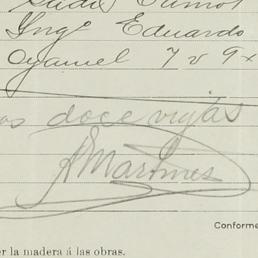 Ynge Eduardo
Oyamel 7 v 9x
os doce vigas
A Martines
Conforme
er la madera á las obras.